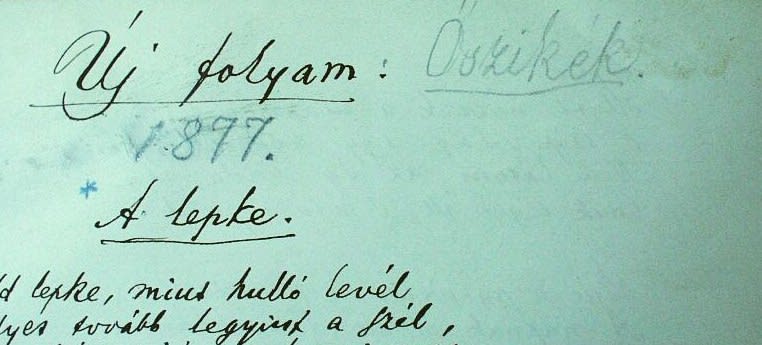 Új folyam: Őszikék.
1877.
*
A lepke.
lepke, mint hulló levél
tovább legyint a szél,